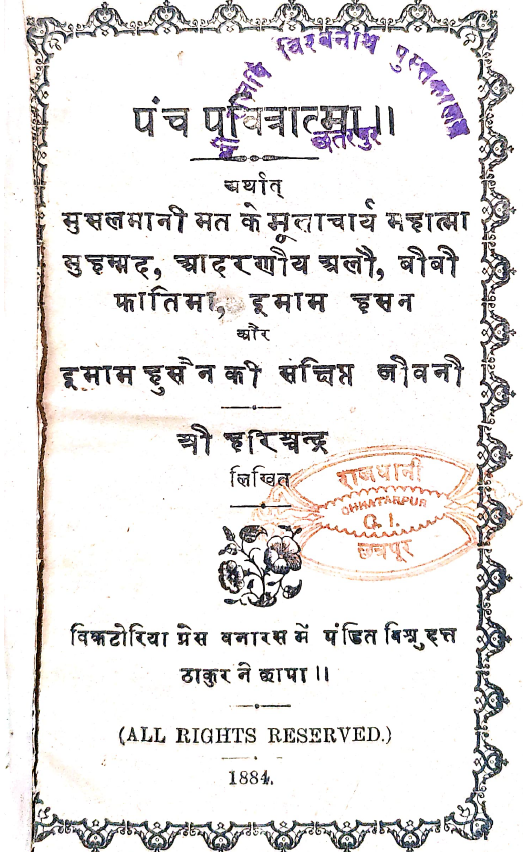 विश्वनाथ पुस्तकालय
छतरपुर
पंच पवित्रात्मा॥
अर्थात्
मुसलमानी मत के मूलाचार्य महात्मा
मुहम्मद, आदरणीय अली, बीबी
फातिमा, इमाम हसन
और
इमाम हुसैन की संक्षिप्त जीवनी
श्री हरिश्चन्द्र
लिखित
राजधानी
CHHATARPUR
C. I.
छत्रपूर
विक्टोरिया प्रेस बनारस में पंडित विष्णु दत्त
ठाकुर ने छापा॥
(ALL RIGHTS RESERVED.)
1884.